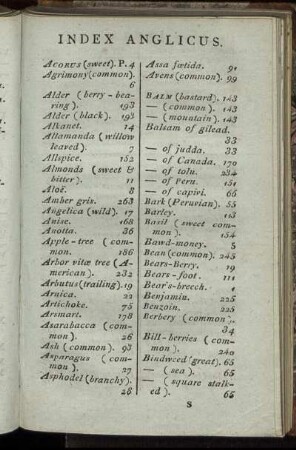 INDEX ANGLICUS.
Acorus (sweet). P. 4
Agrimony (common).
6
Alder (berry-bea-
ring). 193
Alder (black). 193
Alkanet. 14
Allamanda (willow
leaved). 7
Allspice. 152
Almonds (sweet &
bitter). 11
Aloë. 8
Amber gris. 263
Angelica (wild). 17
Anise. 168
Anotta. 36
Apple-tree (com-
mon. 186
Arbor vitæ tree (A-
merican). 232
Arbutus (trailing). 19
Arnica. 22
Artichoke. 75
Arsmart. 178
Asarabacca (com-
mon). 26
Ash (common). 93
Asparagus (com-
mon). 27
Asphodel (branchy).
28
Assa fœtida. 91
Avens (common). 99
Balm (bastard). 143
— (common). 143
— (mountain). 143
Balsam of gilead.
33
— of judda. 33
— of Canada. 170
— of tolu. 234
— of Peru. 151
— of capivi. 66
Bark (Peruvian). 55
Barley. 113
Basil (sweet com-
mon). 154
Bawd-money. 5
Bean (common). 245
Bears-Berry. 19
Bears-foot. 111
Bear's-breech. 1
Benjamin. 225
Benzoin. 225
Berbery (common).
34
Bill-berries (com-
mon). 240
Bindweed (great). 65
— (sea). 65
— (square stalk-
ed). 65
S